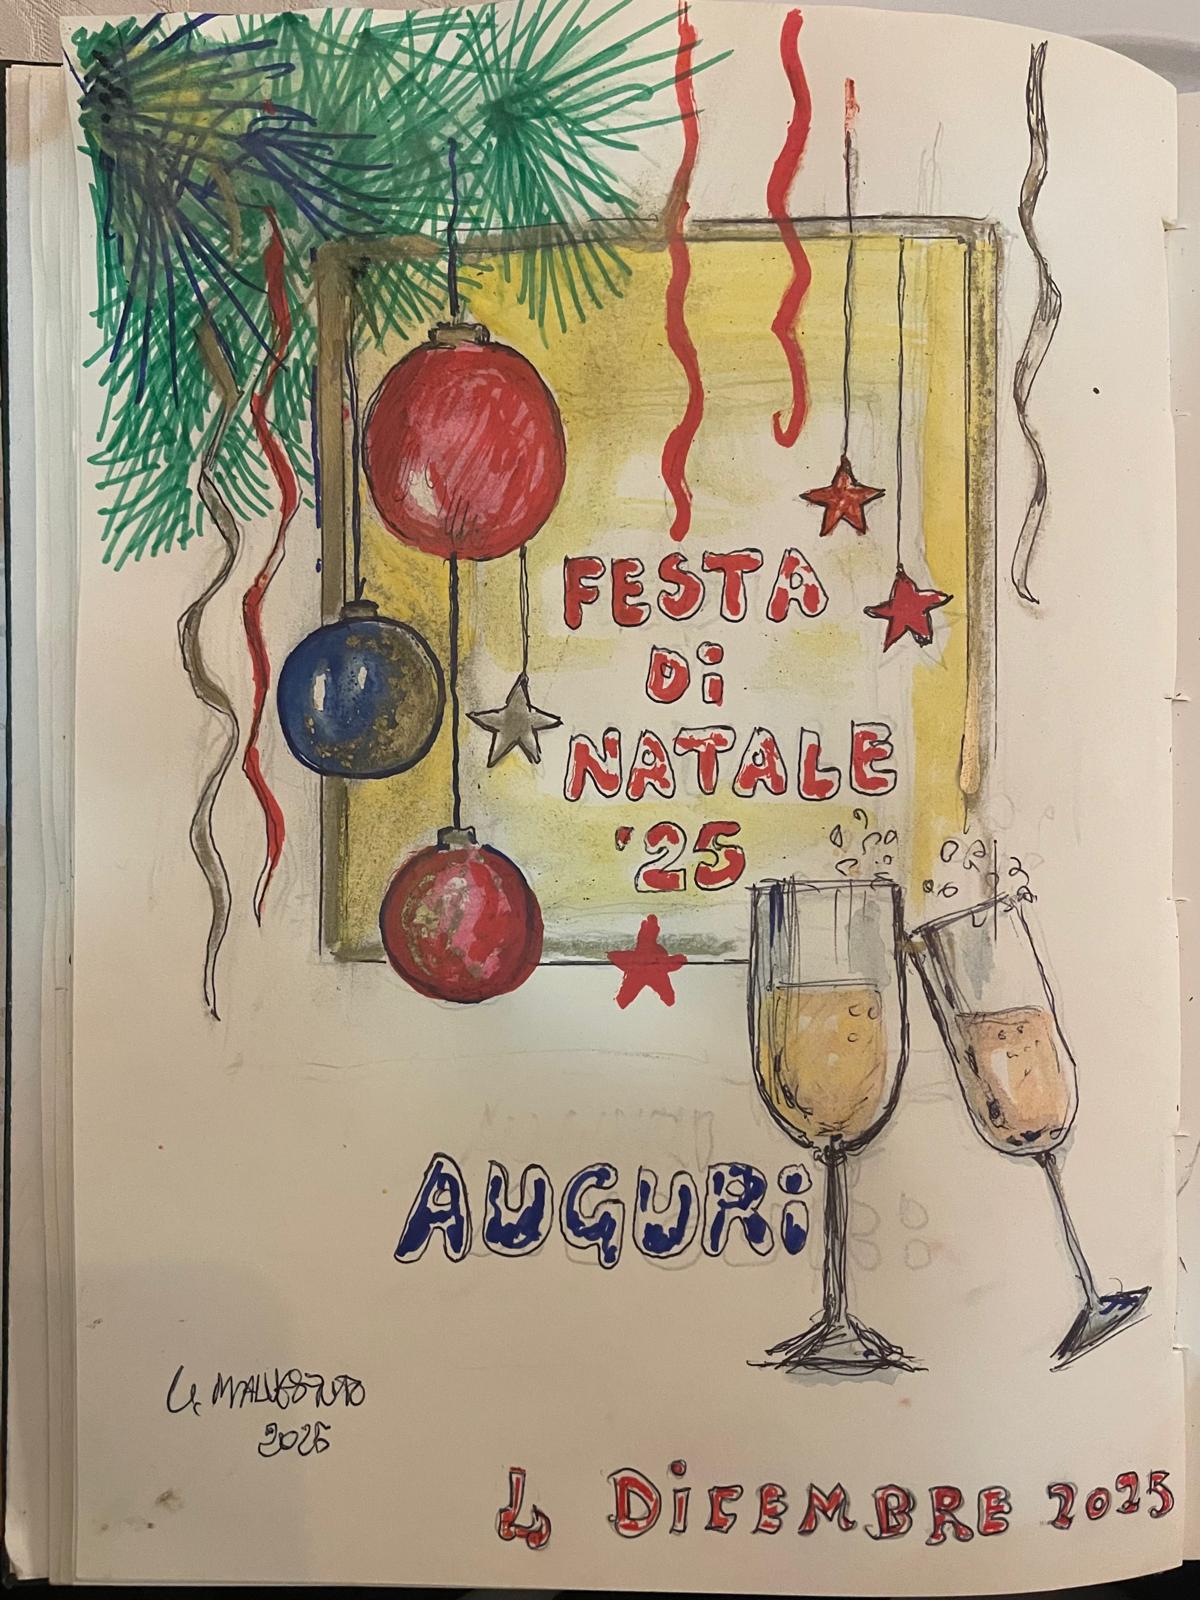 FESTA
Di
NATALE
'25
AUGURi
G. MALVESTUTO
2025
4 DiCEMBRE 2025